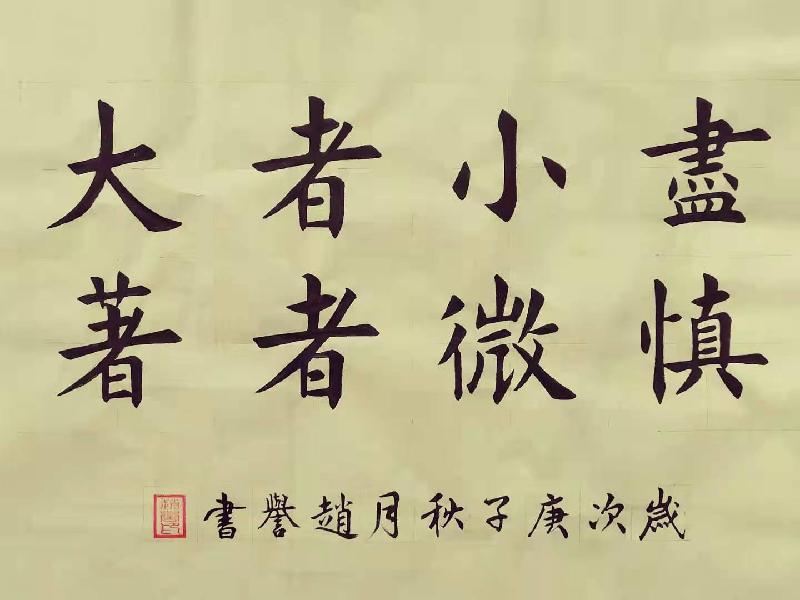 盡小者大
慎微者著
歲次庚子秋月趙譽書